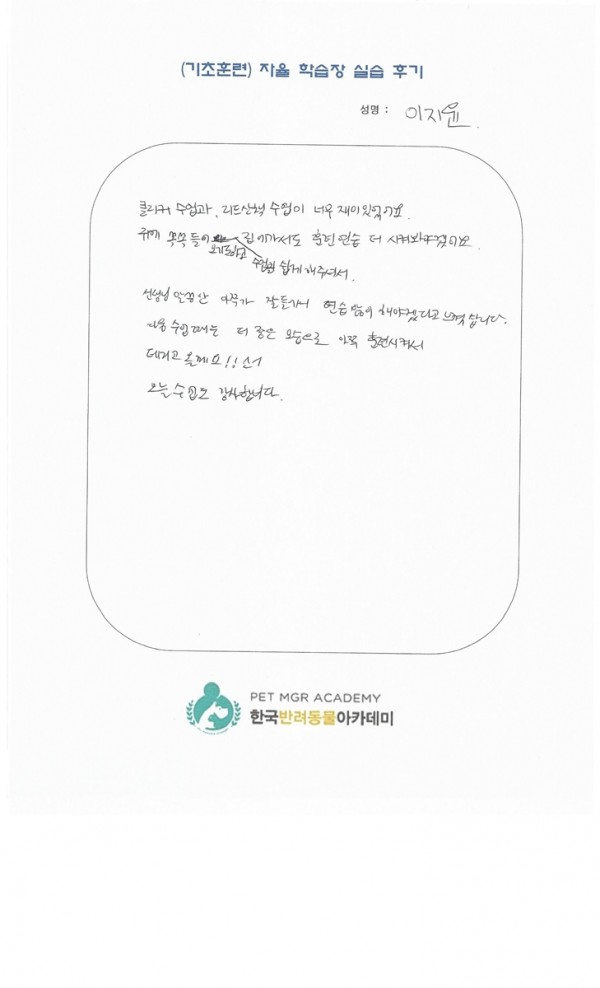 (기초훈련) 자율 학습장 실습 후기
성명 : 이지윤
클리커 수업과, 리드산책 수업이 너무 재미있었어요.
귀에 쏙쏙 들어오기도하고 수업을 쉽게 해주셔서. 집에가서도 훈련 연습 더 시켜봐야겠어요.
선생님 말씀만 아직가 잘들어서 연습 많이 해야겠다고 느꼈습니다.
다음 수업때는 더 좋은 모습으로 훈련시켜서
데리고 올께요!!
오늘 수업도 감사합니다.
PET MGR ACADEMY
한국반려동물아카데미